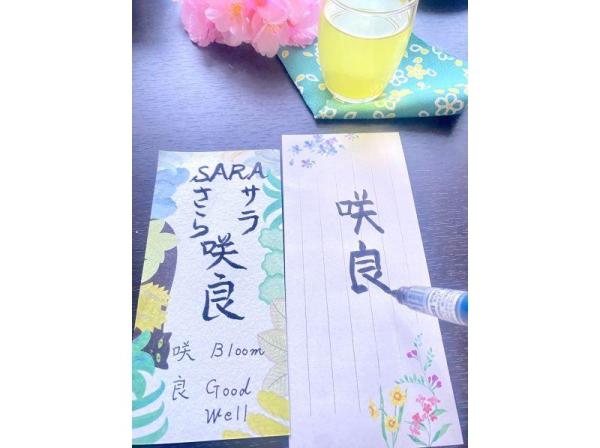 SARA
サラ
さら
咲良
咲 Bloom
良 Good
Well
咲良